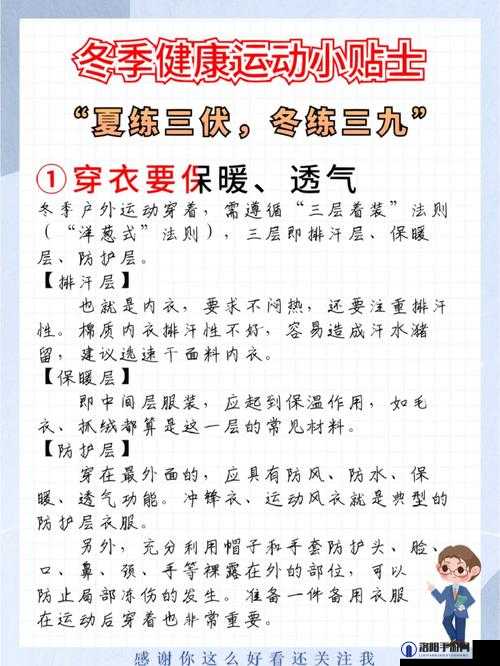 冬季健康运动小贴士
“夏练三伏，冬练三九”
①穿衣要保暖、透气
冬季户外运动穿着，需遵循“三层着装”法则
（“洋葱式”法则），三层即排汗层、保暖
层、防护层。
【排汗层】
也就是内衣，要求不闷热，还要注重排汗
性。棉质内衣排汗性不好，容易造成汗水潴
留，建议选速干面料内衣。
【保暖层】
即中间层服装，应起到保温作用，如毛
衣、抓绒都算是这一层的常见材料。
【防护层】
穿在最外面的，应具有防风、防水、保
暖、透气功能。冲锋衣、运动风衣就是典型的
防护层衣服。
另外，充分利用帽子和手套防护头、脸、
口、鼻、颈、手等裸露在外的部位，可以
防止局部冻伤的发生。准备一件备用衣服
在运动后穿着也非常重要。
感谢你这么好看还关注我
洛阳手游网